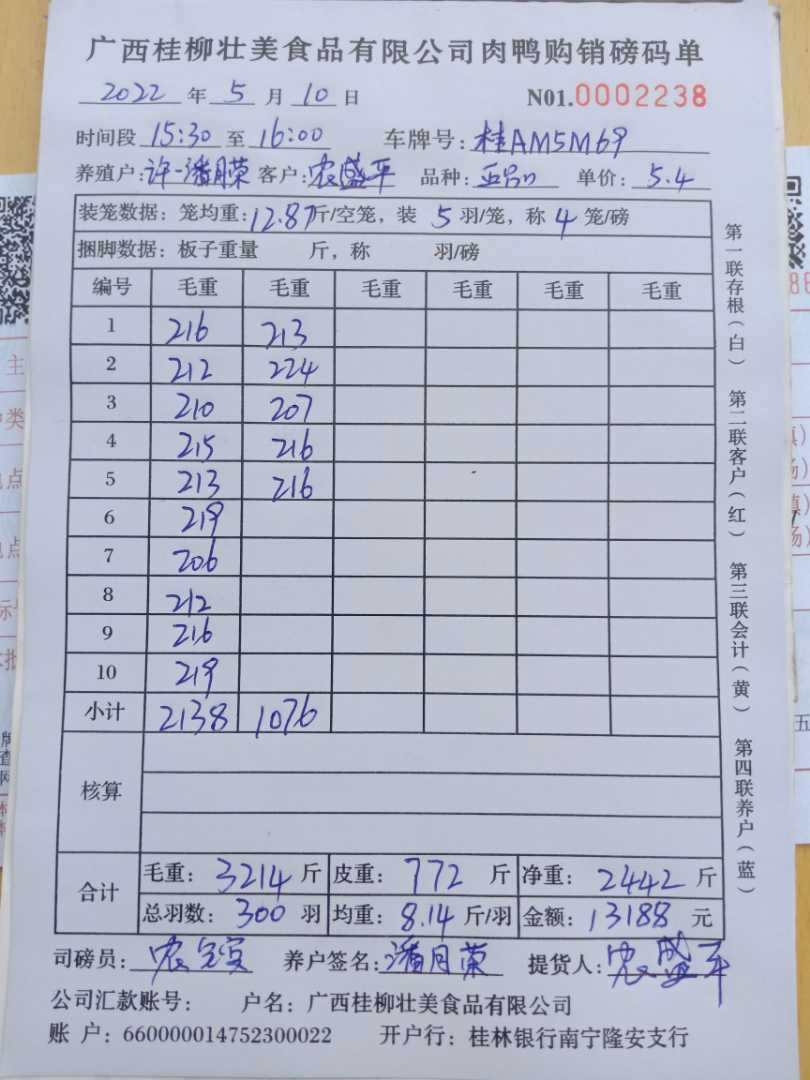 广西桂柳壮美食品有限公司肉鸭购销磅码单
2022 年 5 月 10 日 N01.0002238
时间段 15:30 至 16:00 车牌号: 桂AM5M69
养殖户: 许一潘月荣 客户: 农盛平 品种: 单价: 5.4
装笼数据: 笼均重: 12.87斤/空笼, 装 5 羽/笼, 称 4 笼/磅
捆脚数据: 板子重量 斤, 称 羽/磅
编号 毛重 毛重 毛重 毛重 毛重 毛重
1 216 213
2 212 224
3 210 207
4 215 216
5 213 216
6 219
7 206
8 212
9 216
10 219
小计 2138 1076
核算
合计
毛重: 3214 斤 皮重: 772 斤 净重: 2442 斤
总羽数: 300 羽 均重: 8.14 斤/羽 金额: 13188 元
司磅员: 农 养户签名: 潘月荣 提货人: 农盛平
公司汇款账号: 户名: 广西桂柳壮美食品有限公司
账 户: 660000014752300022 开户行: 桂林银行南宁隆安支行
第一联存根(白) 第二联客户(红) 第三联会计(黄) 第四联养户(蓝)